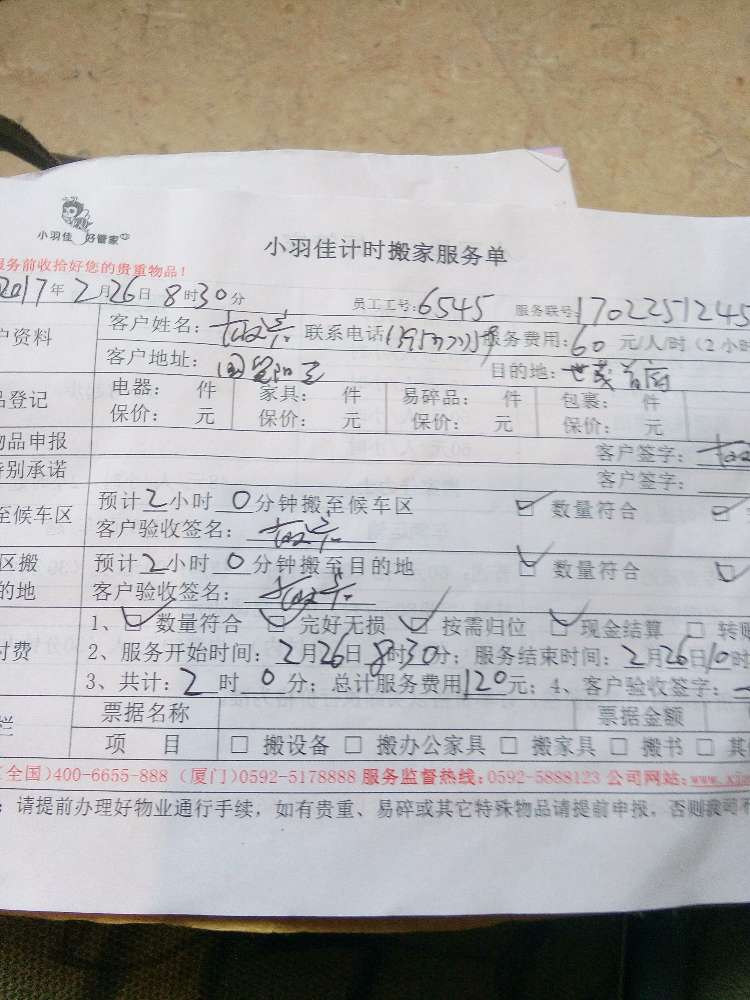 小羽佳 好管家
小羽佳计时搬家服务单
服务前收拾好您的贵重物品！
2017年2月26日8时30分 员工工号：6545 服务联号：1702251245
户资料 客户姓名： 联系电话 服务费用：60元/人/时（2小时
客户地址： 目的地：世茂首府
品登记 电器： 件 家具： 件 易碎品： 件 包裹： 件
保价： 元 保价： 元 保价： 元 保价： 元
物品申报 客户签字：
特别承诺 客户签字：
至候车区 预计2小时0分钟搬至候车区 数量符合
客户验收签名：
区搬 预计2小时0分钟搬至目的地 数量符合
的地 客户验收签名：
1、数量符合 完好无损 按需归位 现金结算 转账
付费 2、服务开始时间：2月26日8时30分；服务结束时间：2月26日10时
3、共计：2时0分；总计服务费用120元；4、客户验收签字：
栏 票据名称 票据金额
项 目 搬设备 搬办公家具 搬家具 搬书 其
(全国)400-6655-888 (厦门)0592-5178888 服务监督热线:0592-5888123 公司网站:www.xi
：请提前办理好物业通行手续，如有贵重、易碎或其它特殊物品请提前申报，否则我司不